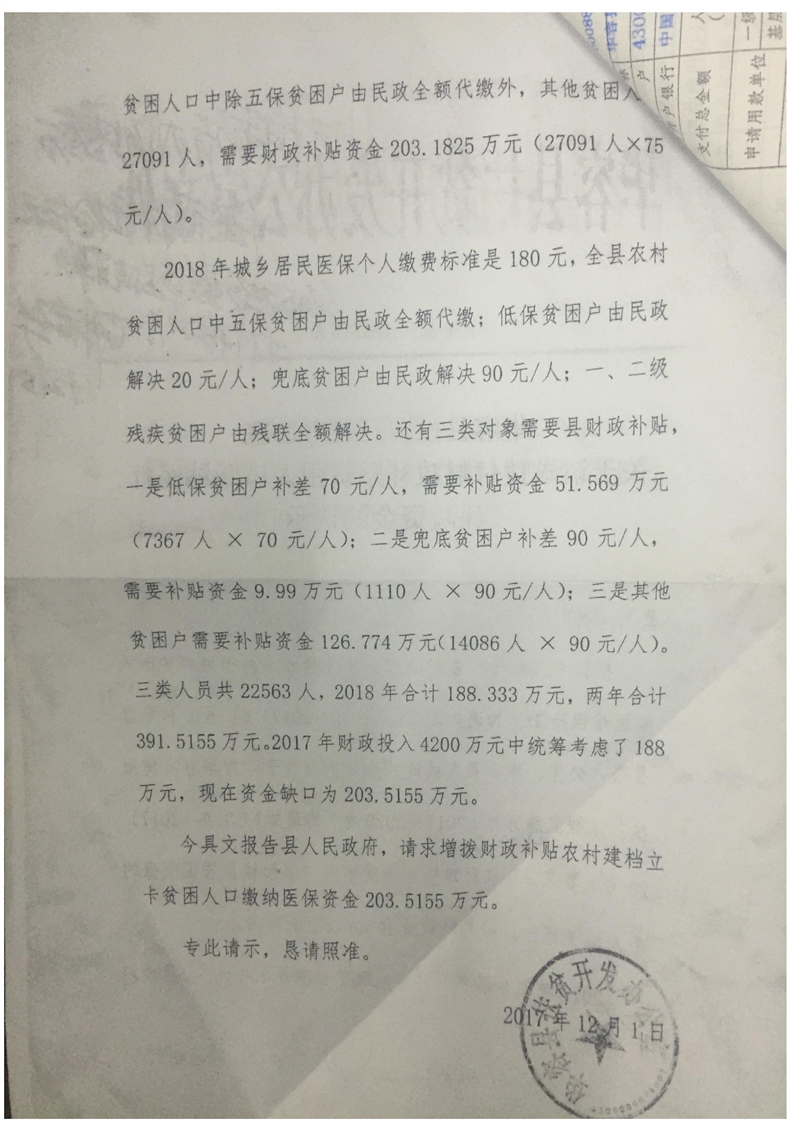 贫困人口中除五保贫困户由民政全额代缴外，其他贫困人
27091人，需要财政补贴资金203.1825万元（27091人×75
元/人）。
2018年城乡居民医保个人缴费标准是180元，全县农村
贫困人口中五保贫困户由民政全额代缴；低保贫困户由民政
解决20元/人；兜底贫困户由民政解决90元/人；一、二级
残疾贫困户由残联全额解决。还有三类对象需要县财政补贴，
一是低保贫困户补差70元/人，需要补贴资金51.569万元
（7367人 × 70元/人）；二是兜底贫困户补差90元/人，
需要补贴资金9.99万元（1110人 × 90元/人）；三是其他
贫困户需要补贴资金126.774万元（14086人 × 90元/人）。
三类人员共22563人，2018年合计188.333万元，两年合计
391.5155万元。2017年财政投入4200万元中统筹考虑了188
万元，现在资金缺口为203.5155万元。
今具文报告县人民政府，请求增拨财政补贴农村建档立
卡贫困人口缴纳医保资金203.5155万元。
专此请示，恳请照准。
2017年12月1日
华容县扶贫开发办公室
申请用款单位
支付总金额
户银行
中国
4300
一级
基层